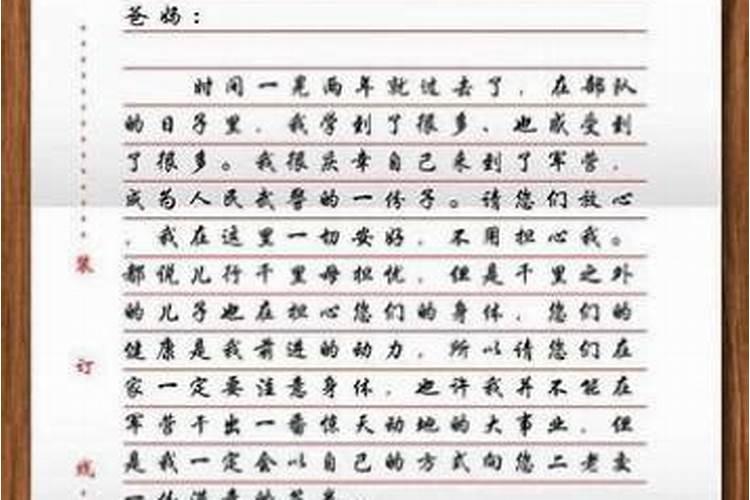 爸妈：
时间一晃两年就过去了，在部队
的日子里，我学到了很多、也感受到
了很多。我很庆幸自己来到了军营，
成为人民武警的一份子。请您们放心
，我在这里一切安好，不用担心我。
都说儿行千里母担忧，但是千里之外
的儿子也在担心您们的身体，您们的
健康是我前进的动力，所以请您们在
家一定要注意身体，也许我并不能在
军营干出一番惊天动地的大事业，但
是我一定会以自己的方式向您二老交
一份满意的答卷；
装
订
线